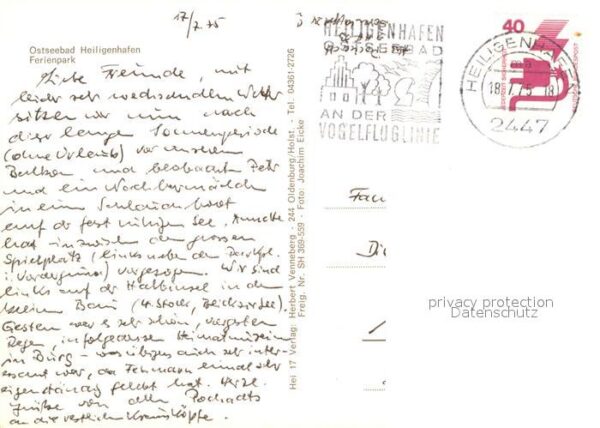 17/7.75
Ostseebad Heiligenhafen
Ferienpark
Liebe Freunde, mit
leider sehr wechselndem Wetter
sitzen wir nun nach
dieser langen Sonnenperiode
(ohne Urlaub) vor unserem
Balkon und beobachten Petr
und ein Nachbarmädchen
in einem Schlauchboot
auf der fast ruhigen See. Annette
hat inzwischen den grossen
Spielplatz (links neben dem Parkpl.
i. Vordergrund) vorgezogen. Wir sind
links auf der Halbinsel in dem
kleinen Bau (4. Stock,
Gestern war es sehr schön, vorgestern
Regen, infolgedessen Heimatmuseum
in Burg – was übrigens auch sehr inter-
essant war, da Fehmarn einmal sehr
eigenständig gelebt hat. Herzl.
Grüße von allen
an die restlichen
Hei 17 Verlag: Herbert Venneberg - 244 Oldenburg/Holst. - Tel. 04361-2726
Freig. Nr. SH 369-559 - Foto: Joachim Eicke
HEILIGENHAFEN
OSTSEEBAD
AN DER
VOGELFLUGLINIE
40
HEILIGENHAFEN
18.7.75-18
2447
Fam
Die
privacy protection
Datenschutz